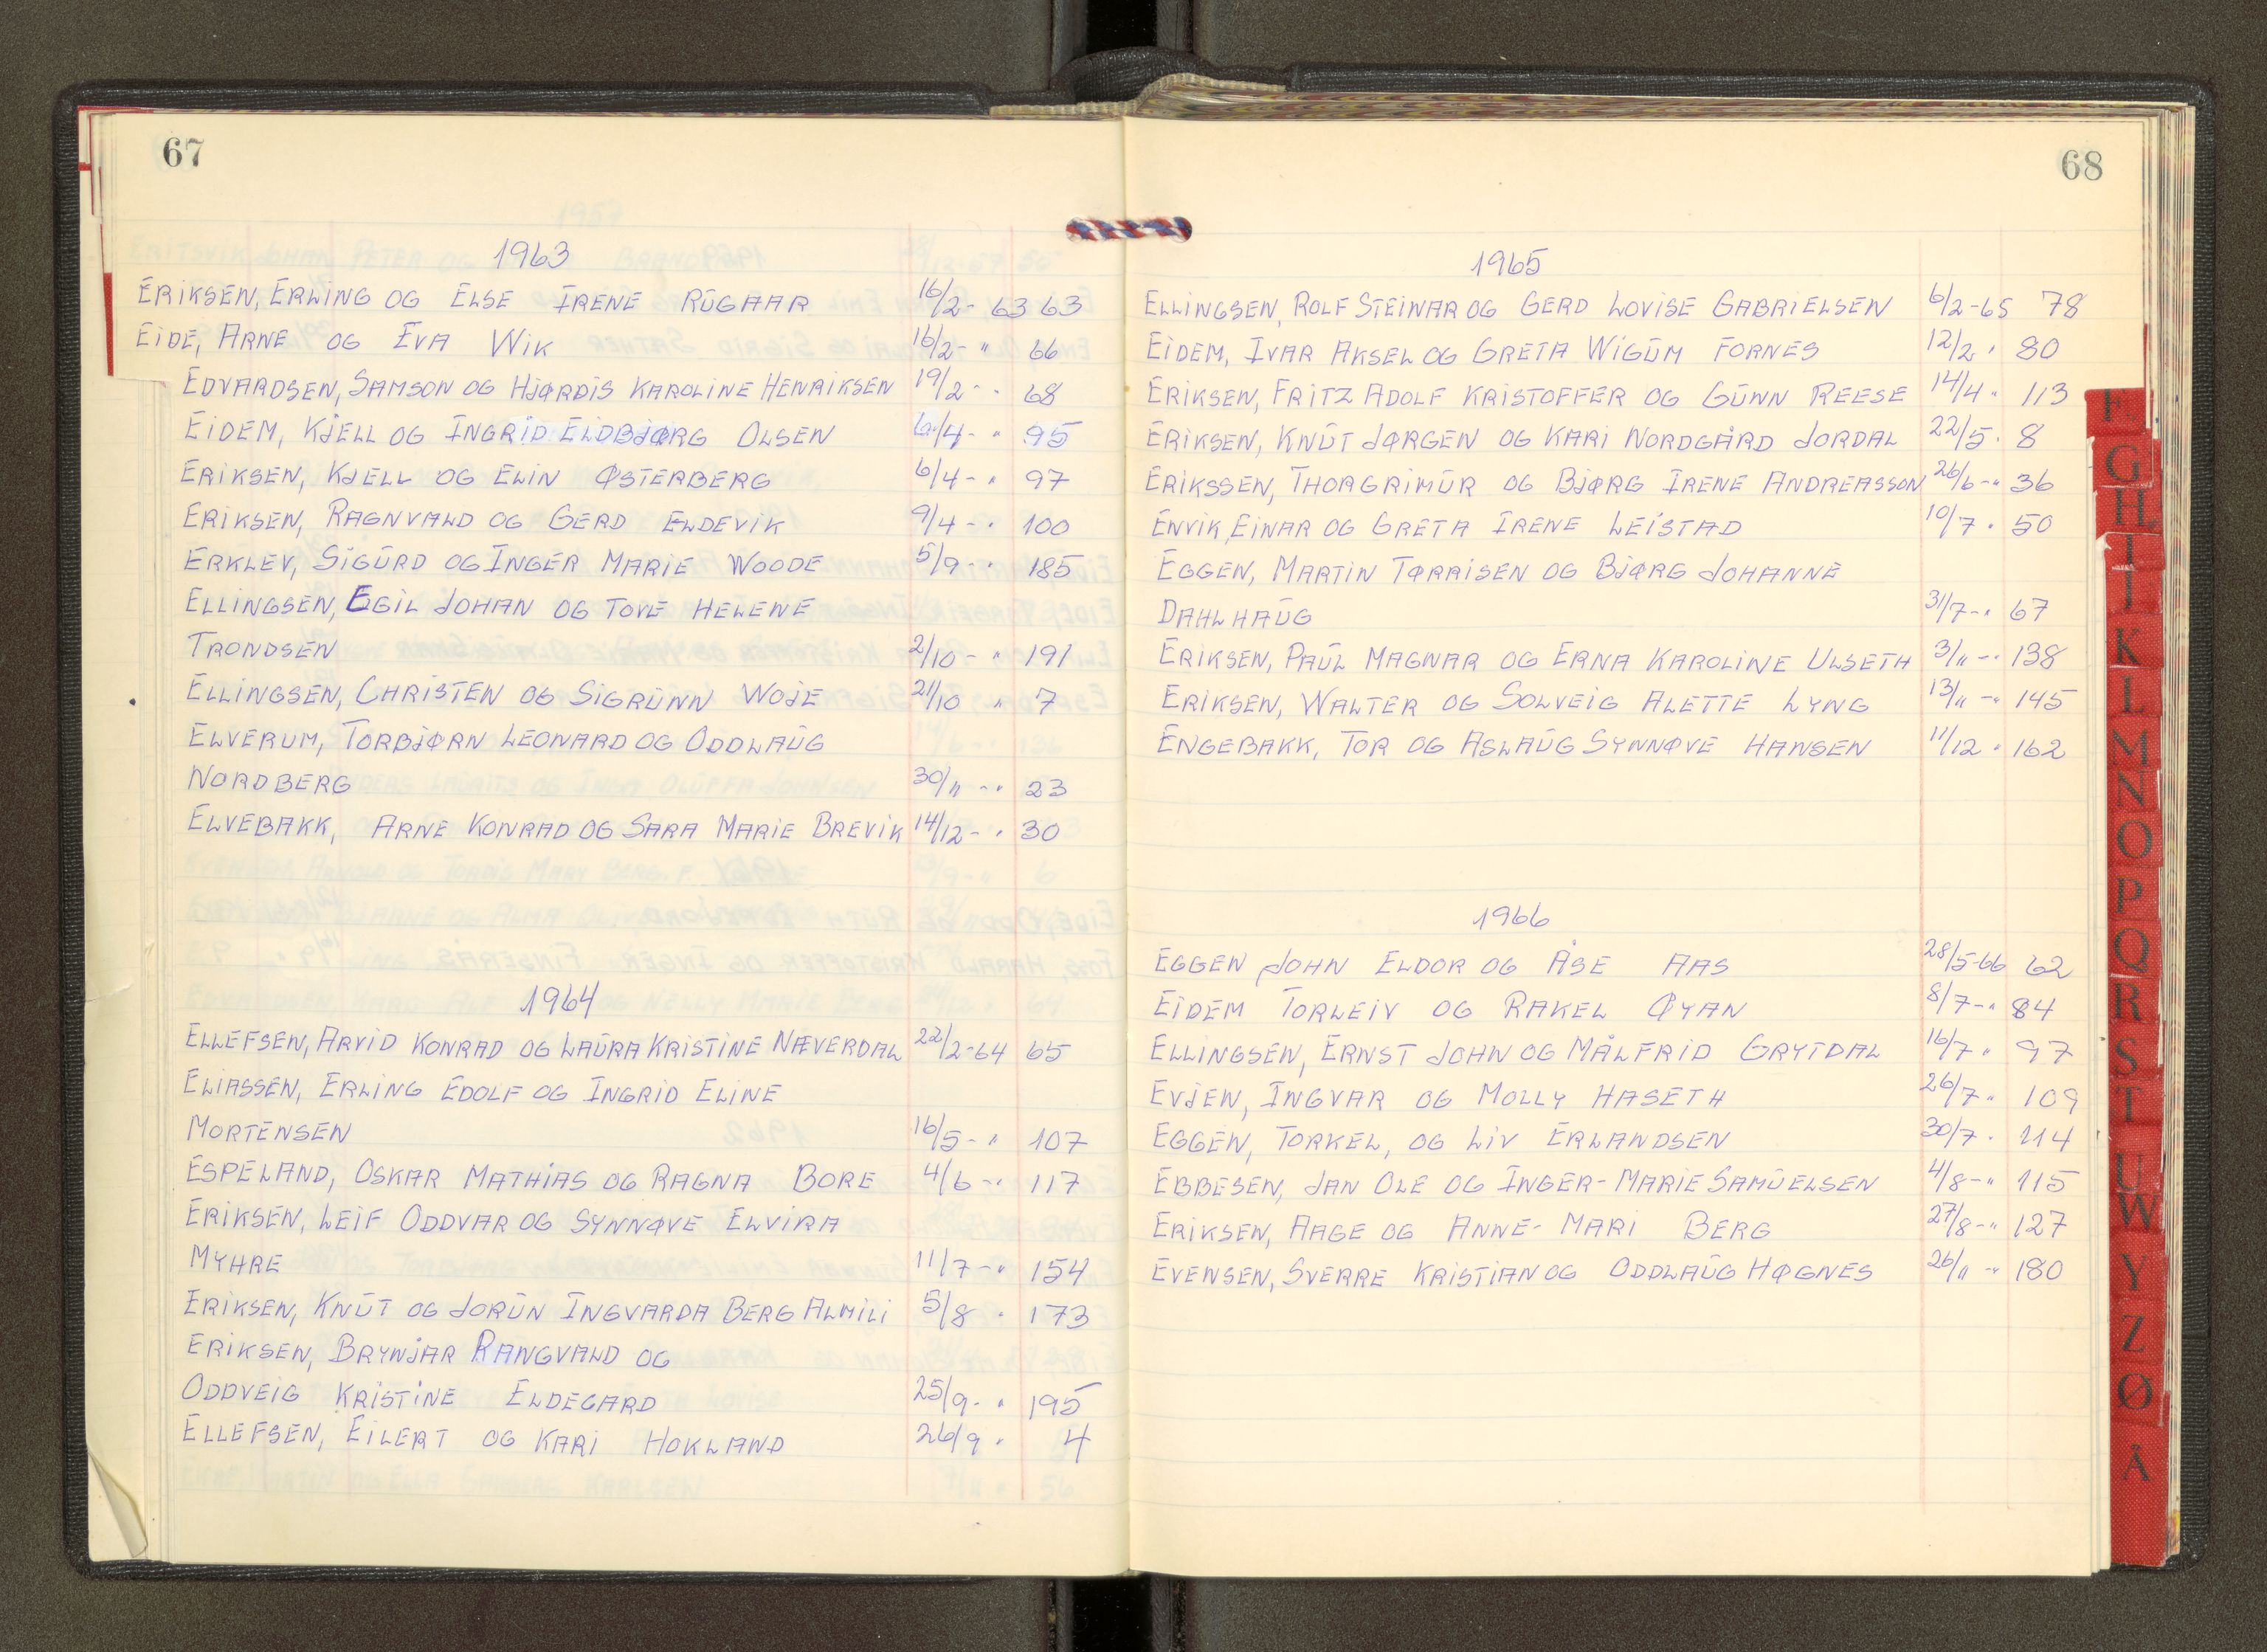 67
1963
ERIKSEN, ERLING OG ELSE IRENE RŪGAAR 16/2- 63 63
EIDE, ARNE OG EVA WIK 16/2- " 66
EDVARDSEN, SAMSON OG HJØRDIS KAROLINE HENRIKSEN 19/2 - " 68
EIDEM, KJELL OG INGRID ELDBJØRG OLSEN 6/4- " 95
ERIKSEN, KJELL OG ELIN ØSTERBERG 6/4- " 97
ERIKSEN, RAGNVALD OG GERD ELDEVIK 9/4- " 100
ERKLEV, SIGŪRD OG INGER MARIE WOODE 5/9- " 185
ELLINGSEN, EGIL JOHAN OG TOVE HELENE
TRONDSEN 2/10- " 191
ELLINGSEN, CHRISTEN OG SIGRŪNN WOJE 21/10 " 7
ELVERUM, TORBJØRN LEONARD OG ODDLAŪG
NORDBERG 30/11 - " 23
ELVEBAKK, ARNE KONRAD OG SARA MARIE BREVIK 14/12- " 30
1964
ELLEFSEN, ARVID KONRAD OG LAŪRA KRISTINE NÆVERDAL 22/2-64 65
ELIASSEN, ERLING EDOLF OG INGRID ELINE
MORTENSEN 16/5- " 107
ESPELAND, OSKAR MATHIAS OG RAGNA BORE 4/6 - " 117
ERIKSEN, LEIF ODDVAR OG SYNNØVE ELVIRA
MYHRE 11/7-" 154
ERIKSEN, KNŪT OG JORŪN INGVARDA BERG ALMILI 5/8 " 173
ERIKSEN, BRYNJAR RANGVALD OG
ODDVEIG KRISTINE ELDEGARD 25/9- " 195
ELLEFSEN, EILERT OG KARI HOKLAND 26/9 " 4
68
1965
ELLINGSEN, ROLF STEINAR OG GERD LOVISE GABRIELSEN 6/2-65 78
EIDEM, IVAR AKSEL OG GRETA WIGŪM FORNES 12/2 " 80
ERIKSEN, FRITZ ADOLF KRISTOFFER OG GŪNN REESE 14/4 " 113
ERIKSEN, KNŪT JØRGEN OG KARI NORDGÅRD JORDAL 22/5 " 8
ERIKSSEN, THORGRIMŪR OG BJØRG IRENE ANDREASSON 26/6-" 36
ENVIK, EINAR OG GRETA IRENE LEISTAD 10/7 " 50
EGGEN, MARTIN TØRRISEN OG BJØRG JOHANNE
DAHLHAŪG 31/7-" 67
ERIKSEN, PAŪL MAGNAR OG ERNA KAROLINE ULSETH 3/11 -" 138
ERIKSEN, WALTER OG SOLVEIG ALETTE LYNG 13/11 -" 145
ENGEBAKK, TOR OG ASLAŪG SYNNØVE HANSEN 11/12 " 162
1966
EGGEN JOHN ELDOR OG ÅSE AAS 28/5-66 62
EIDEM TORLEIV OG RAKEL ØYAN 8/7-" 84
ELLINGSEN, ERNST JOHN OG MÅLFRID GRYTDAL 16/7 " 97
EVJEN, INGVAR OG MOLLY HASETH 26/7 " 109
EGGEN, TORKEL, OG LIV ERLANDSEN 30/7 " 114
EBBESEN, JAN OLE OG INGER-MARIE SAMŪELSEN 4/8-" 115
ERIKSEN, AAGE OG ANNE-MARI BERG 27/8-" 127
EVENSEN, SVERRE KRISTIAN OG ODDLAŪG HØGNES 26/11 -" 180
E
G
H
I
J
K
L
M
N
O
P
Q
R
S
T
U
W
Y
Z
Ø
Å